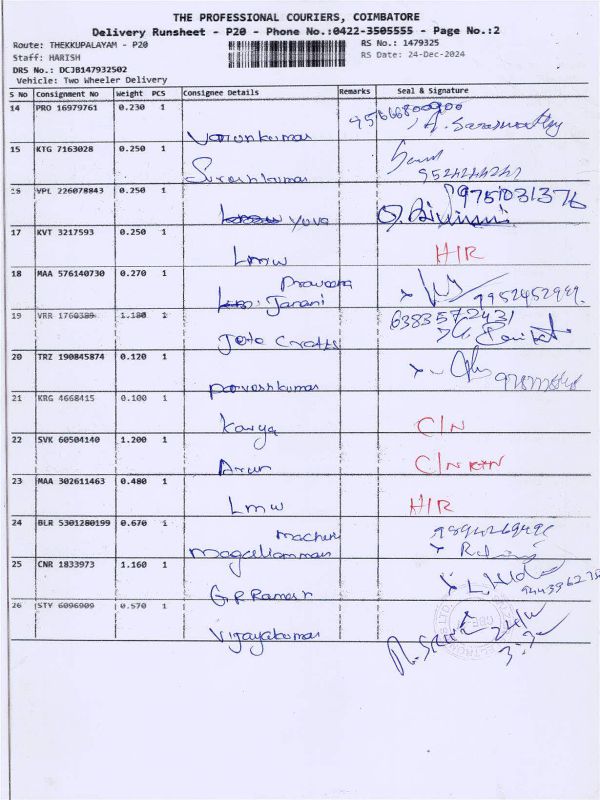 THE PROFESSIONAL COURIERS, COIMBATORE
Delivery Runsheet - P20 - Phone No.:0422-3505555 - Page No.:2
Route: THEKKUPALAYAM - P20
RS No.: 1479325
Staff: HARISH
RS Date: 24-Dec-2024
DRS No.: DCJB147932502
Vehicle: Two Wheeler Delivery
S No Consignment No Weight PCS Consignee Details Remarks Seal & Signature
14 PRO 16979761 0.230 1
Varunkumar
15 KTG 7163028 0.250 1
Sureshkumar
16 VPL 226078843 0.250 1 9751031376
Yuva
17 KVT 3217593 0.250 1
Lmw H/R
18 MAA 576140730 0.270 1
Praveena
Janani 9952452991
19 VRR 1760389 1.180 1 6383572431
Jote Crafts
20 TRZ 190845874 0.120 1
Parveshkumar
21 KRG 4668415 0.100 1
Kavya C/N
22 SVK 60504140 1.200 1
Arun C/N
23 MAA 302611463 0.480 1
Lmw H/R
24 BLR 5301280199 0.670 1
Magaliamman
25 CNR 1833973 1.160 1
G.P.Ramesh
26 STY 6096909 0.570 1
Vijayakumar